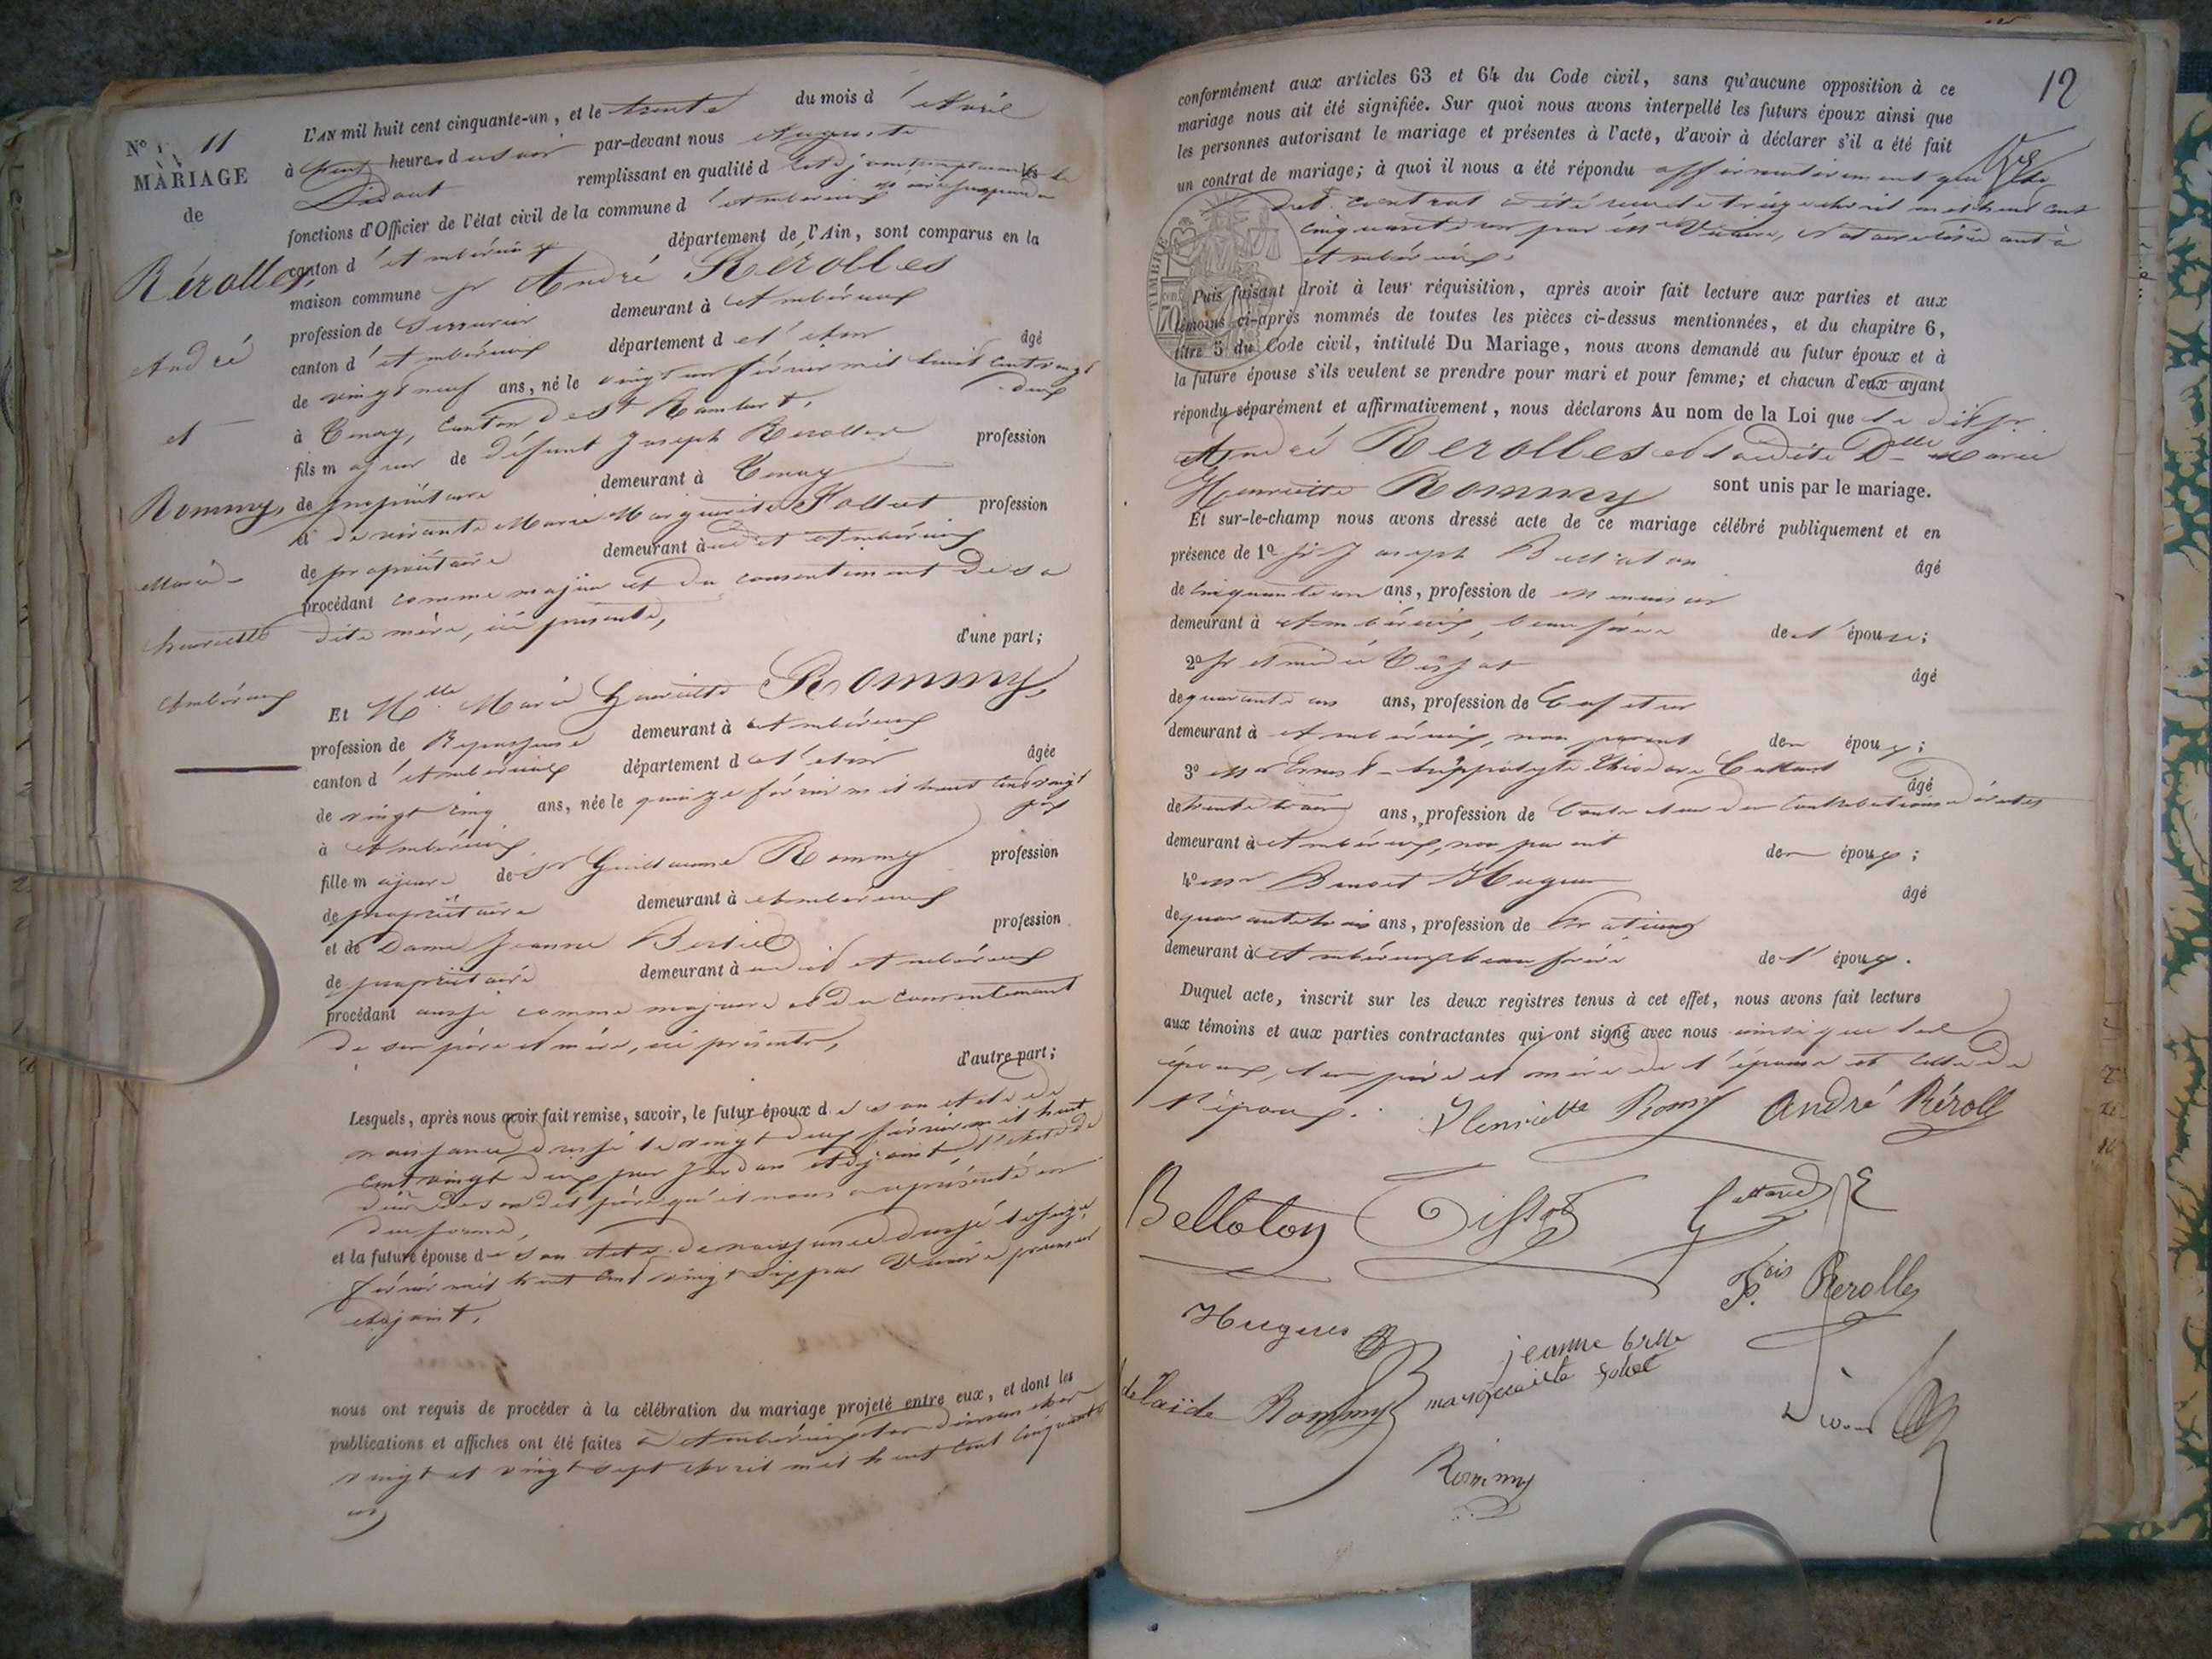 N° 11
MARIAGE
de
Rérolles,
André
et
Rommy,
Marie
henriette
Ambérieux
L'AN mil huit cent cinquante-un, et le trente du mois d'Avril
à heures du soir par-devant nous Auguste
remplissant en qualité d
fonctions d'Officier de l'état civil de la commune d'Ambérieux
canton d'Ambérieux département de l'Ain, sont comparus en la
maison commune Sr André Rérolles
profession de Serrurier demeurant à Ambérieux
canton d'Ambérieux département de l'Ain âgé
de vingt neuf ans, né le vingt un février mil huit cent vingt
deux
à Tenay, Canton de St Rambert,
fils majeur de défunt Joseph Rerolles profession
de propriétaire demeurant à Tenay
et de vivante Marie Marguerite profession
de propriétaire demeurant à Ambérieux
procédant comme majeur et du consentement de sa
dite mère, ici présente,
d'une part;
Et Mlle Marie henriette Rommy,
profession de Repasseuse demeurant à Ambérieux
canton d'Ambérieux département de l'Ain âgée
de vingt cinq ans, née le quinze février mil huit cent vingt
six
à Ambérieux
fille majeure de Sr Guillaume Rommy profession
de propriétaire demeurant à Ambérieux
et de Dame Jeanne profession
de propriétaire demeurant à Ambérieux
procédant aussi comme majeure et du consentement
de ses père et mère, ici présents,
d'autre part;
Lesquels, après nous avoir fait remise, savoir, le futur époux de son acte de
naissance dressé le vingt deux février mil huit
cent vingt deux par Jordan Adjoint, l'acte de
décès de son dit père qu'il nous a représenté en
due forme,
et la future épouse de son Acte de naissance dressé le seize
février mil huit cent vingt six par premier
Adjoint,
nous ont requis de procéder à la célébration du mariage projeté entre eux, et dont les
publications et affiches ont été faites à Ambérieux les dimanches
vingt et vingt sept Avril mil huit cent cinquante
un
12
conformément aux articles 63 et 64 du Code civil, sans qu'aucune opposition à ce
mariage nous ait été signifiée. Sur quoi nous avons interpellé les futurs époux ainsi que
les personnes autorisant le mariage et présentes à l'acte, d'avoir à déclarer s'il a été fait
un contrat de mariage; à quoi il nous a été répondu affirmativement que
contrat a été reçu le treize Avril mil huit cent
cinquante un par Me Notaire résidant à
Ambérieux.
TIMBRE
Puis faisant droit à leur réquisition, après avoir fait lecture aux parties et aux
témoins ci-après nommés de toutes les pièces ci-dessus mentionnées, et du chapitre 6,
titre 5 du Code civil, intitulé Du Mariage, nous avons demandé au futur époux et à
la future épouse s'ils veulent se prendre pour mari et pour femme; et chacun d'eux ayant
répondu séparément et affirmativement, nous déclarons Au nom de la Loi que le dit Sr
André Rerolles et la dite Dlle Marie
Henriette Rommy sont unis par le mariage.
Et sur-le-champ nous avons dressé acte de ce mariage célébré publiquement et en
présence de 1° Sr Joseph Belloton âgé
de cinquante un ans, profession de
demeurant à Ambérieux, beau frère de l'épouse;
2° Sr Tissot âgé
de quarante un ans, profession de Cafetier
demeurant à Ambérieux, non parent des époux;
3° Mr Ernest hippolyte Théodore Cattand âgé
de trente trois ans, profession de Controleur des Contributions directes
demeurant à Ambérieux, non parent des époux;
4° Mr Benoit Hugues âgé
de quarante trois ans, profession de
demeurant à Ambérieux beau frère de l'époux.
Duquel acte, inscrit sur les deux registres tenus à cet effet, nous avons fait lecture
aux témoins et aux parties contractantes qui ont signé avec nous ainsi que les
époux, les père et mère de l'épouse et celle de
l'époux.
Henriette Romy André Réroll
Belloton Tissot
Fois Rerolles
Hugues
jeanne
marguerite
Rommy
Rommy